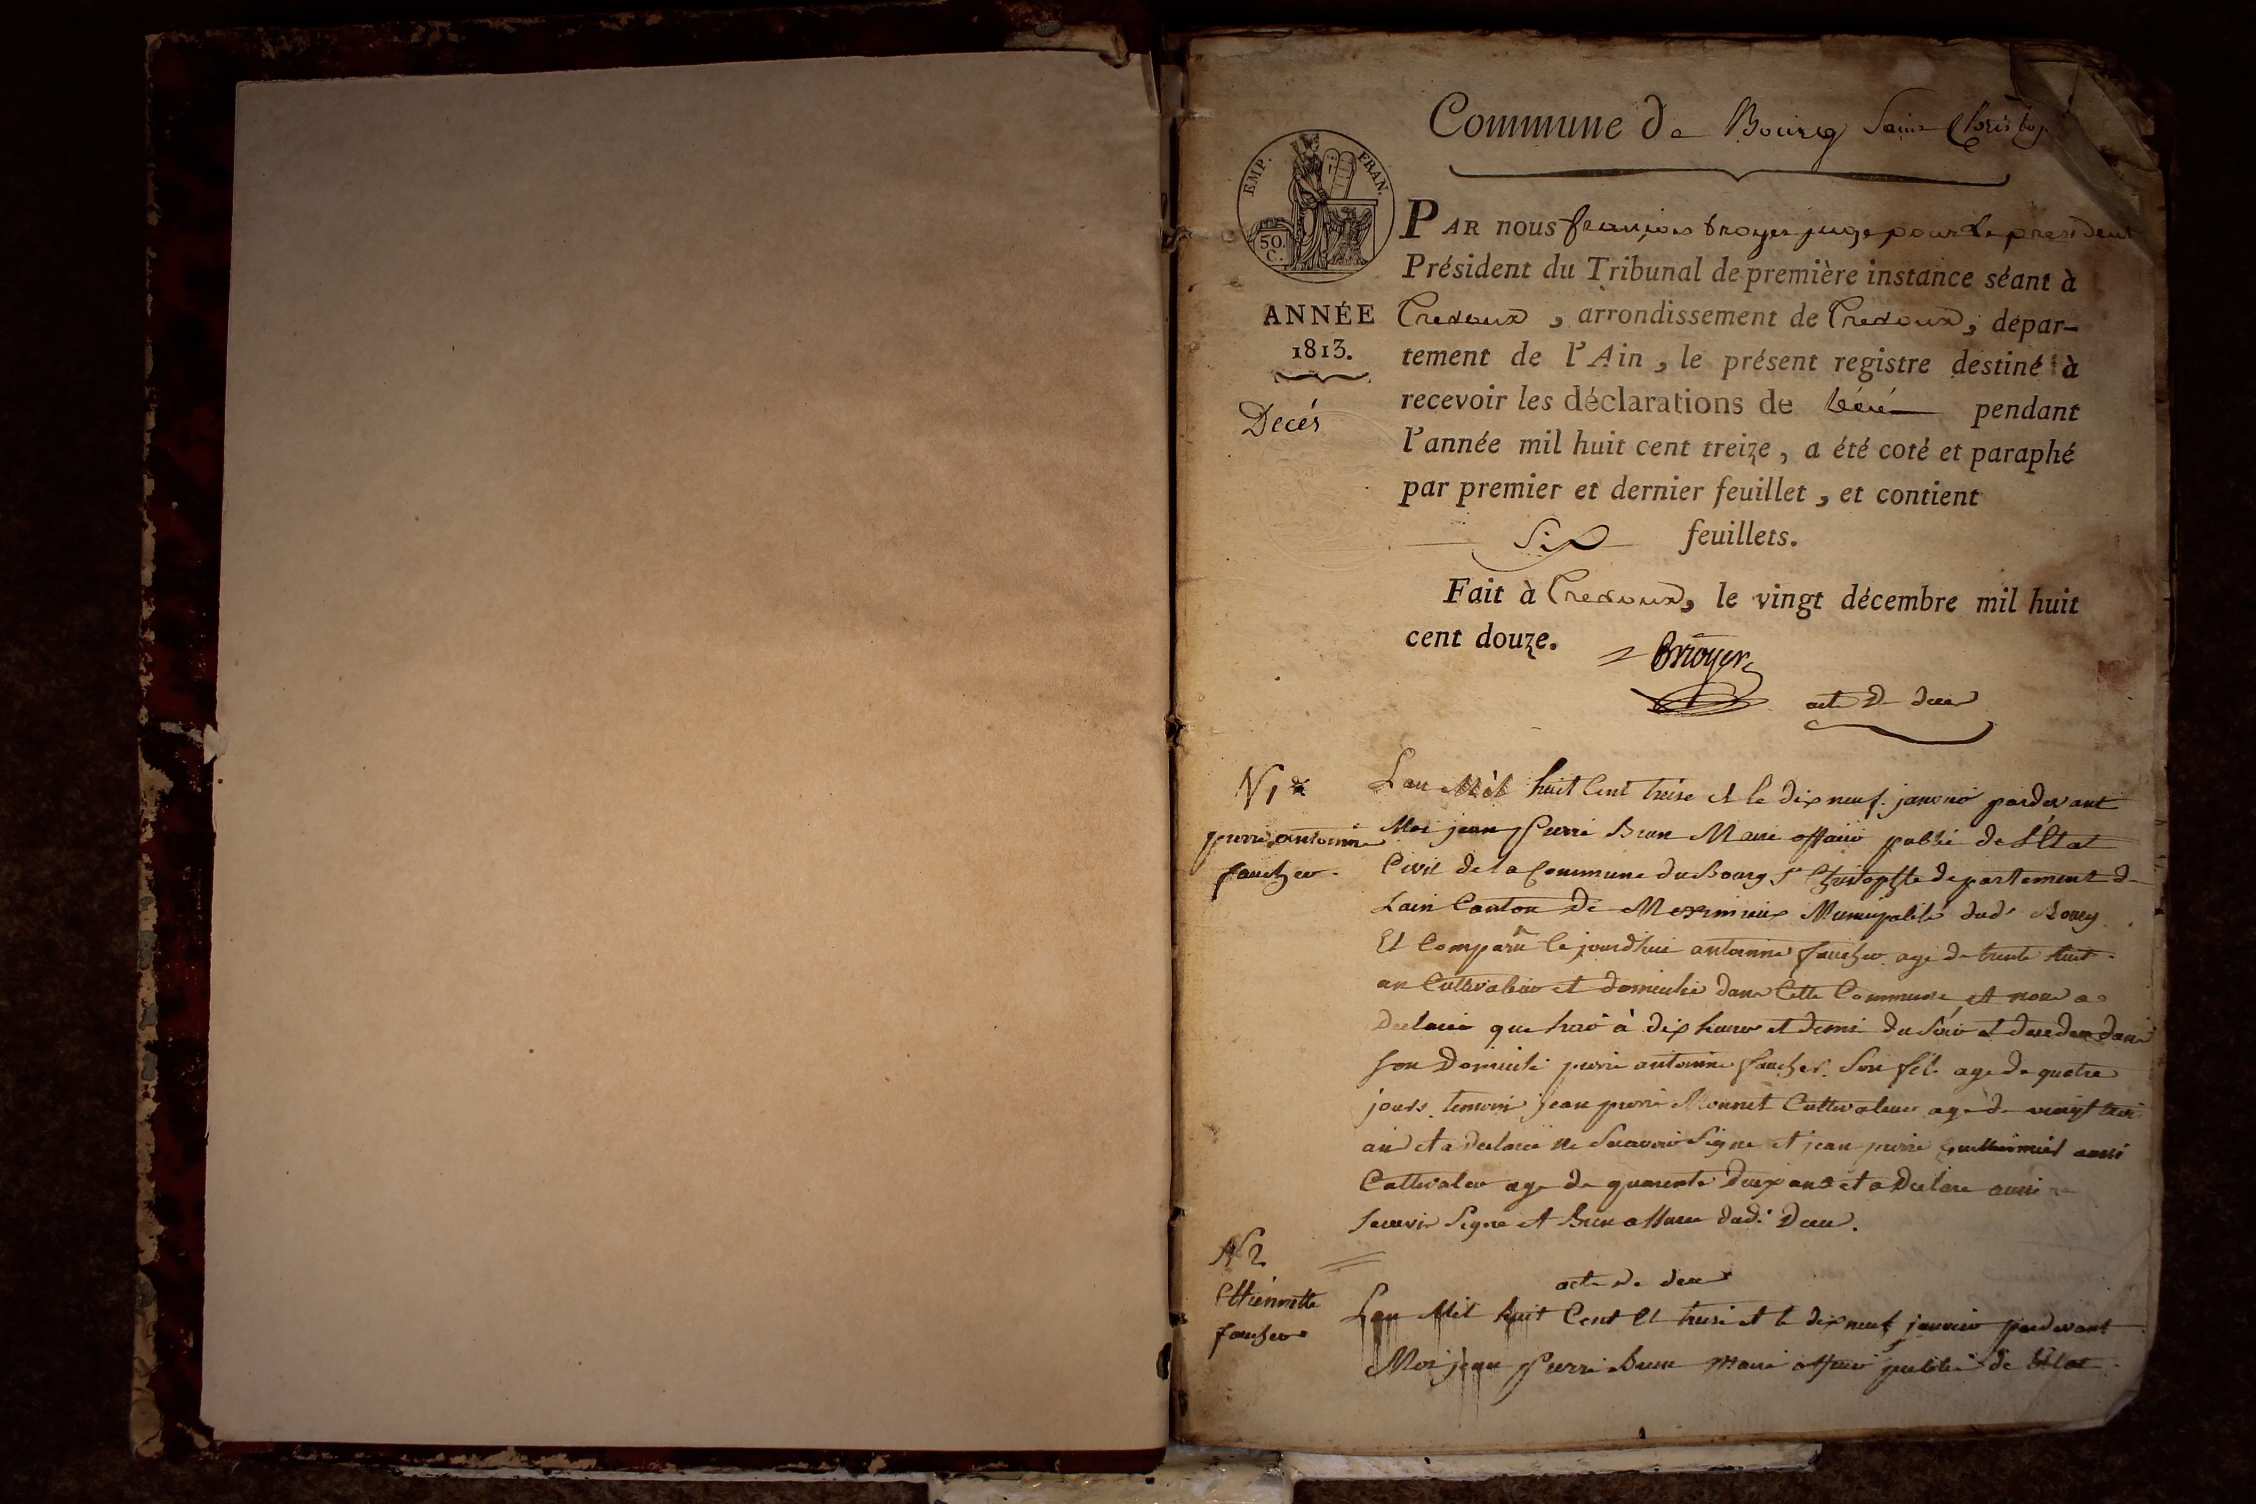 Commune de Bourg Saint Christop
EMP. FRAN.
50.
C.
PAR nous françois broyer juge pour le president
Président du Tribunal de première instance séant à
Trevoux, arrondissement de Trevoux, dépar-
tement de l'Ain, le présent registre destiné à
recevoir les déclarations de Décés pendant
l'année mil huit cent treize, a été coté et paraphé
par premier et dernier feuillet, et contient
Six feuillets.
Fait à Trevoux, le vingt décembre mil huit
cent douze.
Broyer
ANNÉE
1813.
Decés
act de deces
N 1er
pierre antoinne
faucher
Lan Mil huit Cent treise et le dix neuf janvier pardevant
Moi jean Pierre Brun Maire officier public de L'Etat
Civil de la Commune du Bourg St Christophe departement de
Lain Canton de Meximieux Municipalité dudt Bourg
Et Comparu Ce jourdhui antoinne faucher age de trente huit
an Cultivateur et domicilié dans Cette Commune et nous a
Declaré que hier à dix heures et demi du Soir et decedee dans
Son Domicile pierre antoinne faucher Son fils age de quatre
jours temoin jean pierre Monnet Cultivateur age de vingt trois
ans et a declaré ne Scavoir Signe et jean pierre aussi
Cultivateur age de quarente Deux ans et a Declare aussi ne
Scavoir Signe et Brun dudt Deces.
N 2
Ettiennette
faucher
acte de deces
Lan Mil huit Cent et treise et le dix neuf janvier pardevant
Moi jean Pierre Brun maire officier public de L'Etat